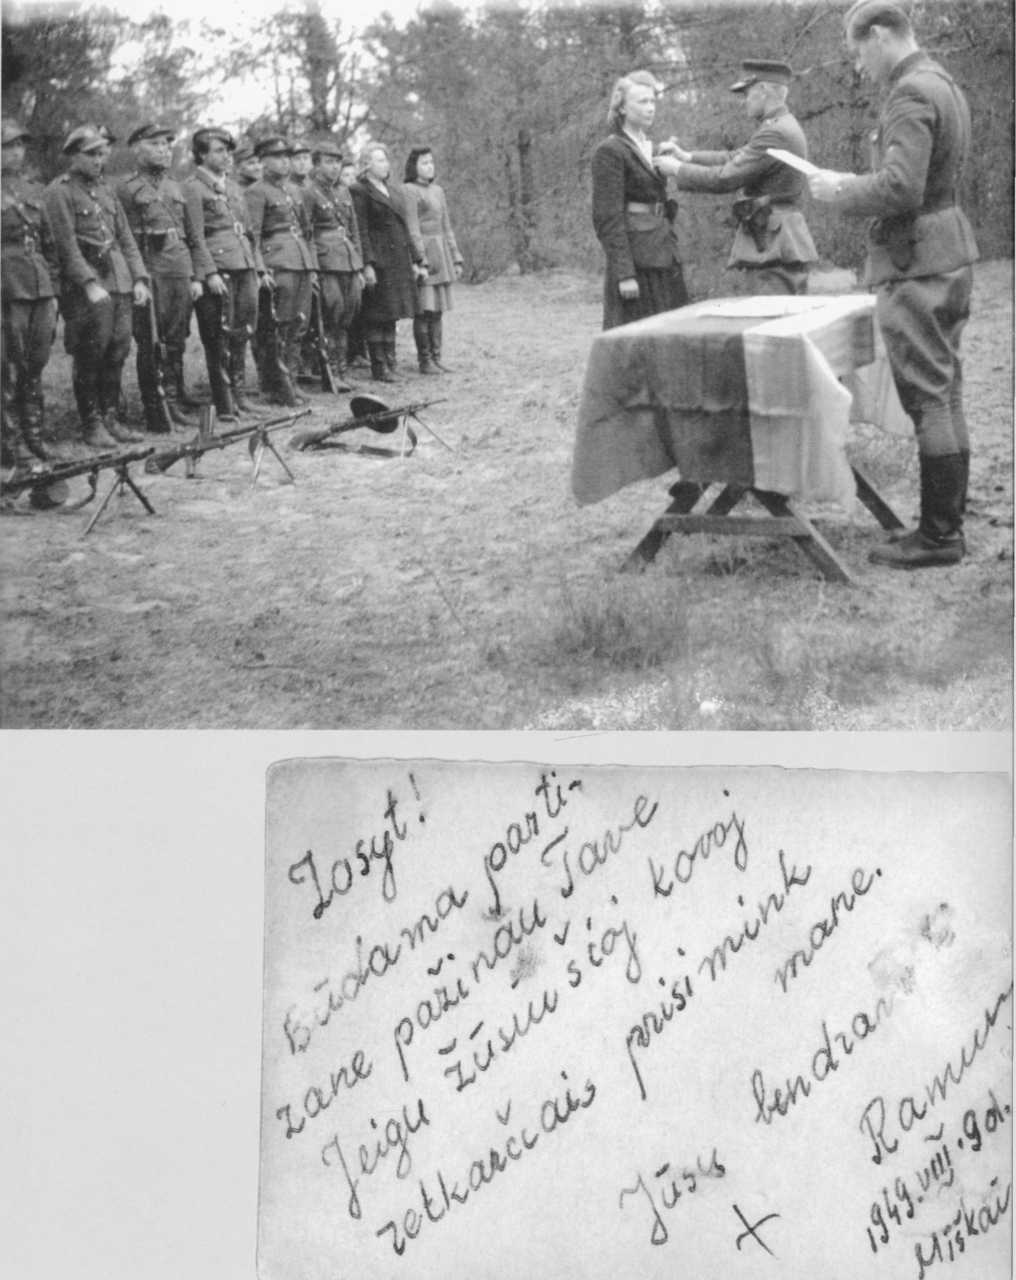 Zosyt!
Būdama parti-
zane pažinau Tave
Jeigu žūsiu šioj kovoj
retkarčiais prisimink
mane.
Jūsų
Ramun
1949.VIII.9d.
Miškai